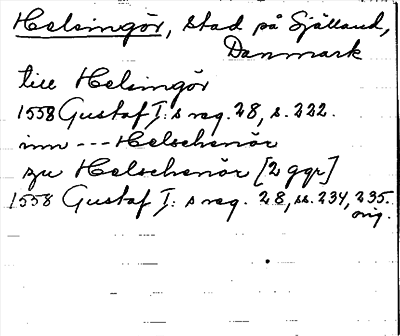 Helsingör, stad på Själland,
Danmark
till Helsingör
1558 Gustaf I:s reg. 28, s. 222.
inn --- Helschenör
zu Helschenör [2 ggr]
1558 Gustaf I:s reg. 28, ss. 234, 235.
orig.